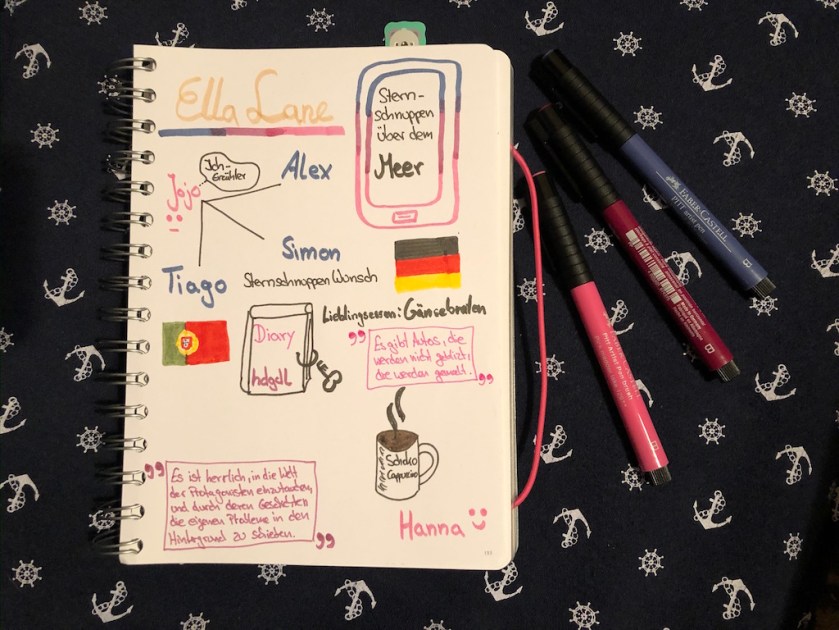 Ella Lane
Stern-
schnuppen
über dem
Meer
Ich-
Erzähler
Alex
Jojo
Simon
Tiago
Sternschnuppen Wunsch
Lieblingsessen: Gänsebraten
Diary
hdgdl
Es gibt Autos, die
werden nicht geblitzt,
die werden gemalt.
Schoko
Cappuccino
Es ist herrlich, in die Welt
der Protagonisten einzutauchen,
und durch deren Geschichten
die eigenen Probleme in den
Hintergrund zu schieben.
Hanna
FABER-CASTELL
PITT artist pen
B
B
B